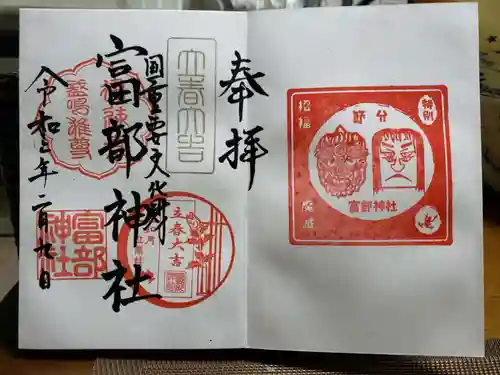 奉拝
立春大吉
国重要文化財
富部神社
令和三年二月九日
立春大吉
富部
神社
特別
節分
招福
富部神社